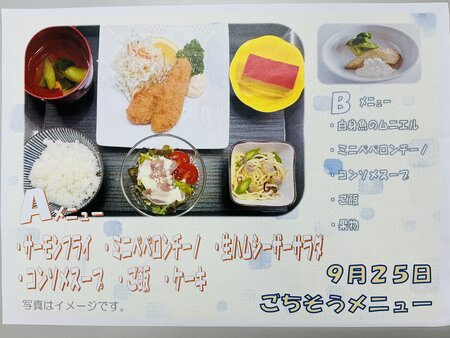 B メニュー
・白身魚のムニエル
・ミニペペロンチーノ
・コンソメスープ
・ご飯
・果物
Aメニュー
・サーモンフライ ・ミニペペロンチーノ ・生ハムシーザーサラダ
・コンソメスープ ・ご飯 ・ケーキ
写真はイメージです。
9月25日
ごちそうメニュー